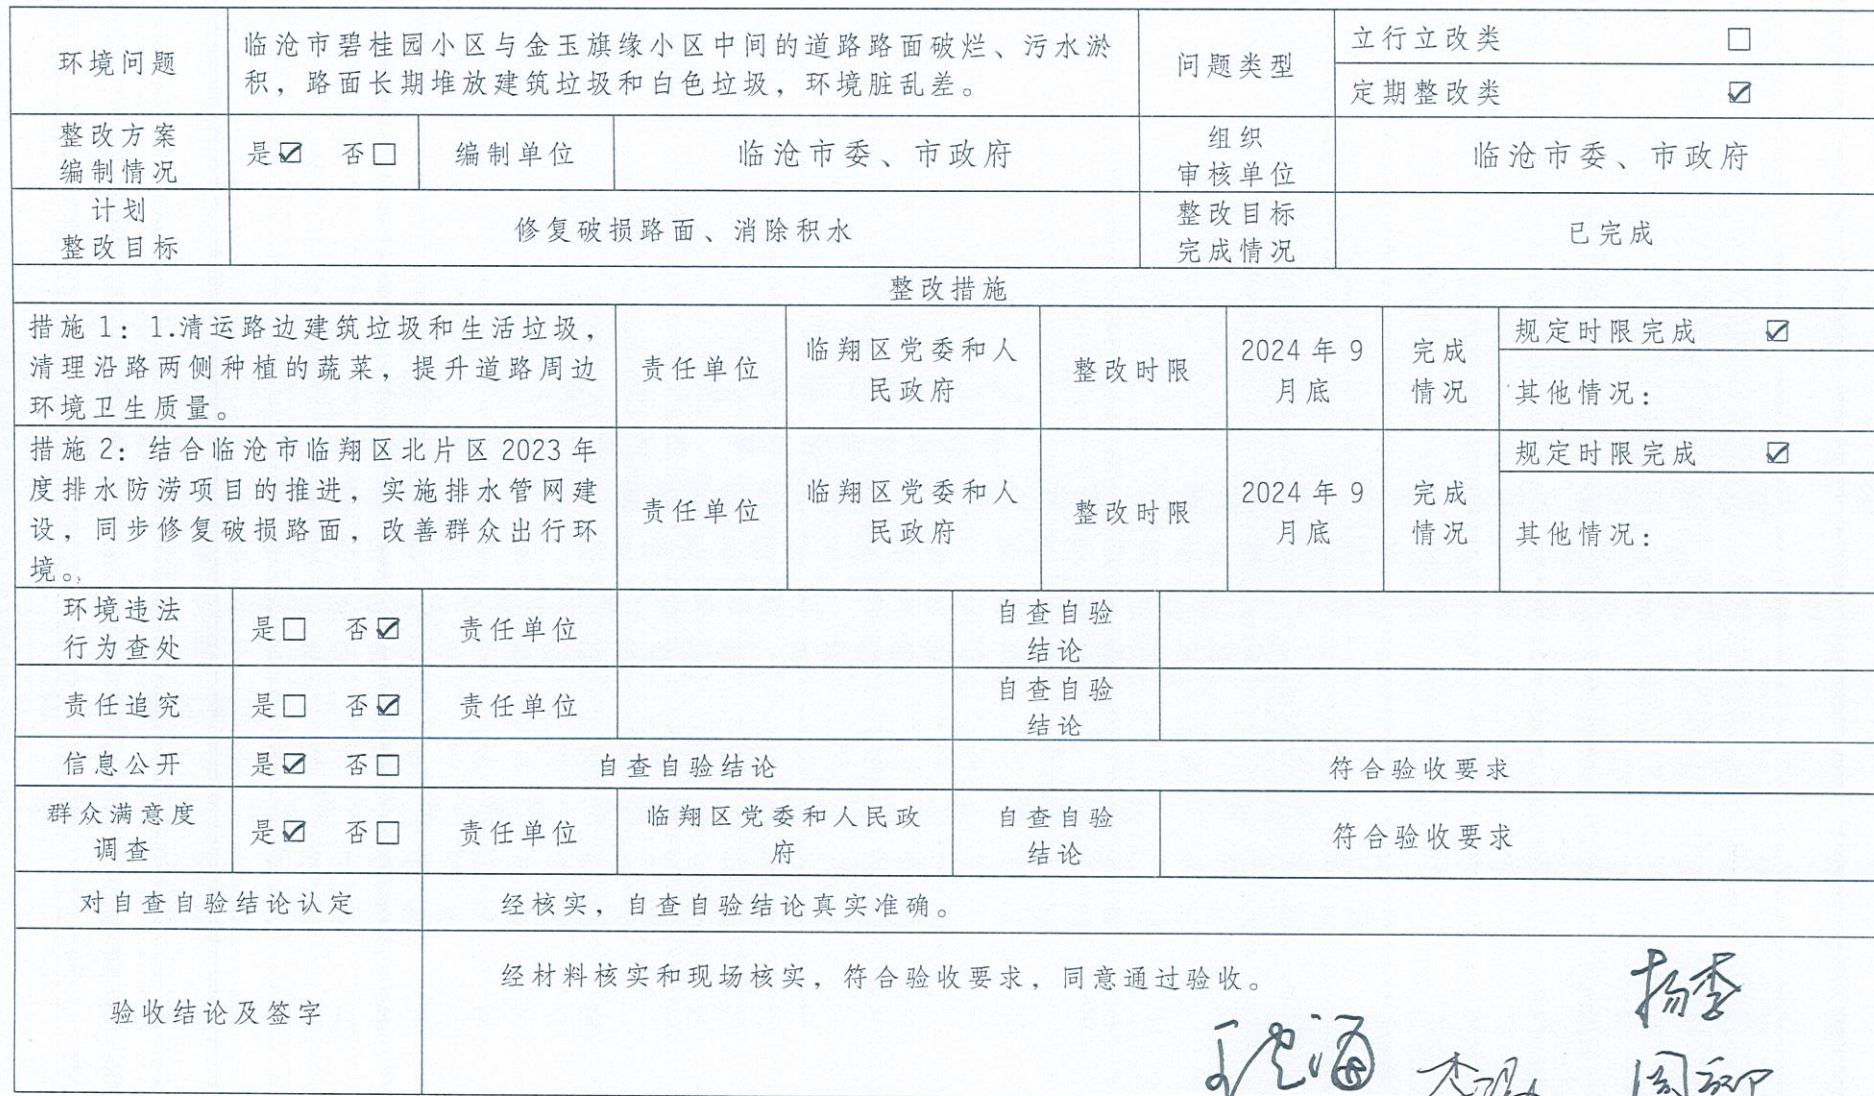 环境问题
临沧市碧桂园小区与金玉旗缘小区中间的道路路面破烂、污水淤
积，路面长期堆放建筑垃圾和白色垃圾，环境脏乱差。
问题类型
立行立改类 □
定期整改类 ☑
整改方案
编制情况
是☑ 否□
编制单位
临沧市委、市政府
组织
审核单位
临沧市委、市政府
计划
整改目标
修复破损路面、消除积水
整改目标
完成情况
已完成
整改措施
措施1：1.清运路边建筑垃圾和生活垃圾，
清理沿路两侧种植的蔬菜，提升道路周边
环境卫生质量。
责任单位
临翔区党委和人
民政府
整改时限
2024年9
月底
完成
情况
规定时限完成 ☑
其他情况：
措施2：结合临沧市临翔区北片区2023年
度排水防涝项目的推进，实施排水管网建
设，同步修复破损路面，改善群众出行环
境。
责任单位
临翔区党委和人
民政府
整改时限
2024年9
月底
完成
情况
规定时限完成 ☑
其他情况：
环境违法
行为查处
是□ 否☑
责任单位
自查自验
结论
责任追究
是□ 否☑
责任单位
自查自验
结论
信息公开
是☑ 否□
自查自验结论
符合验收要求
群众满意度
调查
是☑ 否□
责任单位
临翔区党委和人民政
府
自查自验
结论
符合验收要求
对自查自验结论认定
经核实，自查自验结论真实准确。
验收结论及签字
经材料核实和现场核实，符合验收要求，同意通过验收。